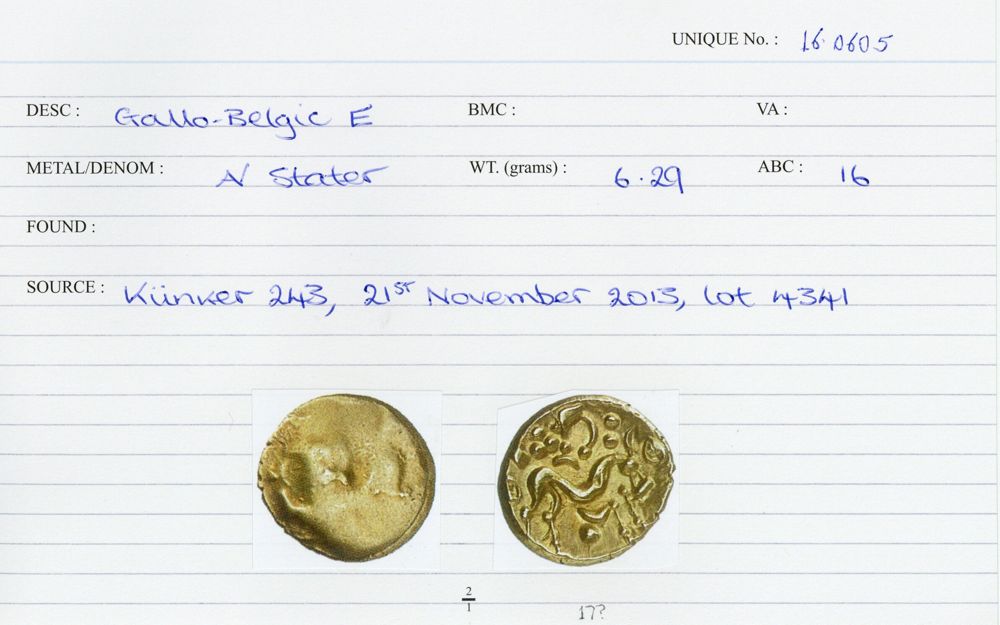 UNIQUE No. : 16.0605
DESC : Gallo-Belgic E BMC : VA :
METAL/DENOM : AV Stater WT. (grams) : 6.29 ABC : 16
FOUND :
SOURCE : Künker 243, 21st November 2013, lot 4341
2/1
17?